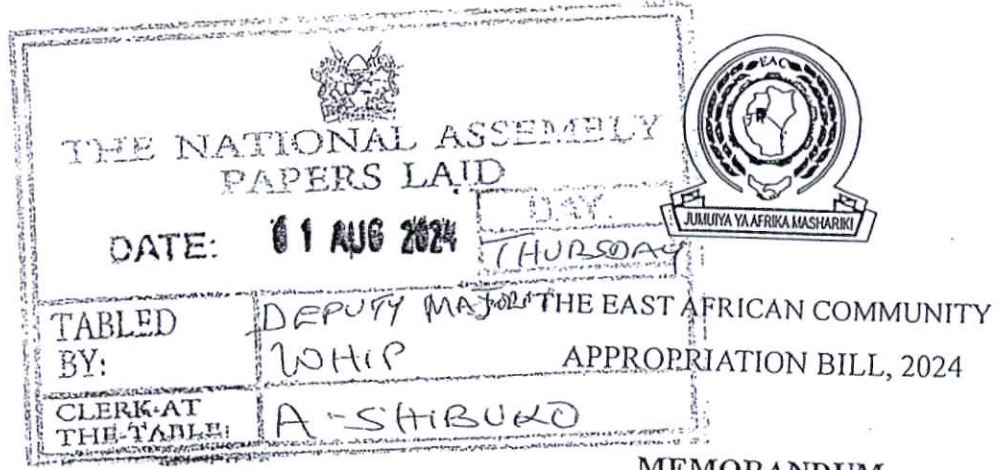 THE NATIONAL ASSEMBLY
PAPERS LAID
DATE: 01 AUG 2024
DAY.
THURSDAY
TABLED BY:
DEPUTY MAJORITY WHIP
CLERK-AT THE-TABLE:
A-SHIBUKO
EAC
JUMUIYA YA AFRIKA MASHARIKI
THE EAST AFRICAN COMMUNITY
APPROPRIATION BILL, 2024
MEMORANDUM